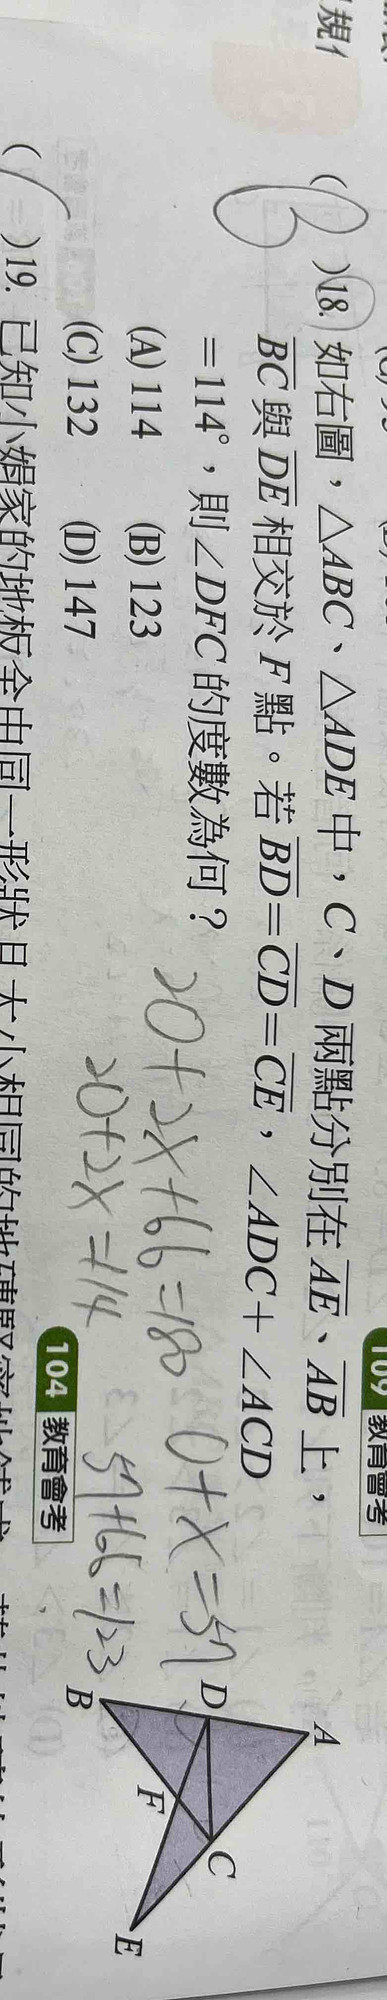 規
109 教育會考
(B)18. 如右圖，△ABC、△ADE 中，C、D 兩點分別在 AE、AB 上，
BC 與 DE 相交於 F 點。若 BD=CD=CE，∠ADC+∠ACD
=114°，則∠DFC 的度數為何？
(A) 114 (B) 123
(C) 132 (D) 147
20+2x+66=180
20+2x=114
0+x=57
57+66=123
A
B
C
D
E
F
104 教育會考
( )19. 已知小娟家的地板全由同一形狀且大小相同的地磚緊密地鋪成